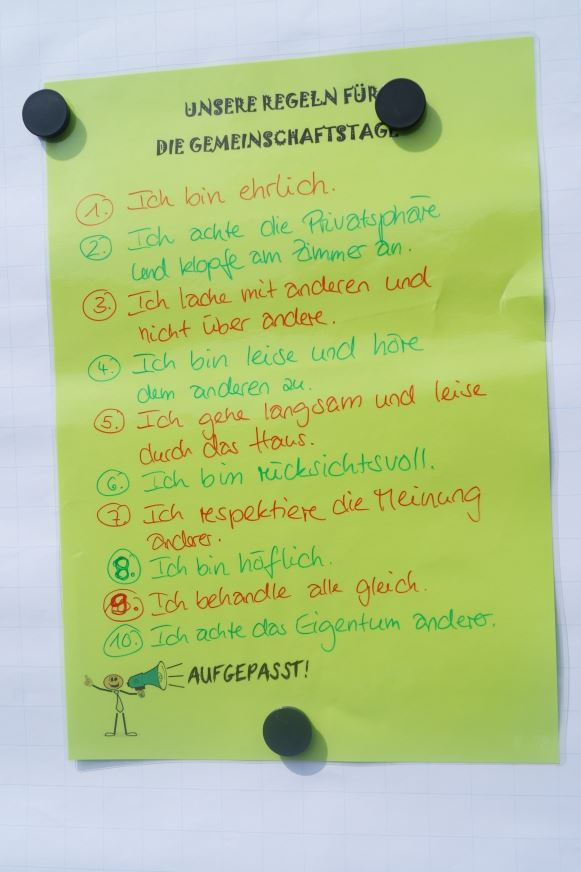 UNSERE REGELN FÜR
DIE GEMEINSCHAFTSTAGE
1. Ich bin ehrlich.
2. Ich achte die Privatsphäre
und klopfe am Zimmer an.
3. Ich lache mit anderen und
nicht über andere.
4. Ich bin leise und höre
dem anderen zu.
5. Ich gehe langsam und leise
durch das Haus.
6. Ich bin rücksichtsvoll.
7. Ich respektiere die Meinung
anderer.
8. Ich bin höflich.
9. Ich behandle alle gleich.
10. Ich achte das Eigentum anderer.
AUFGEPASST!